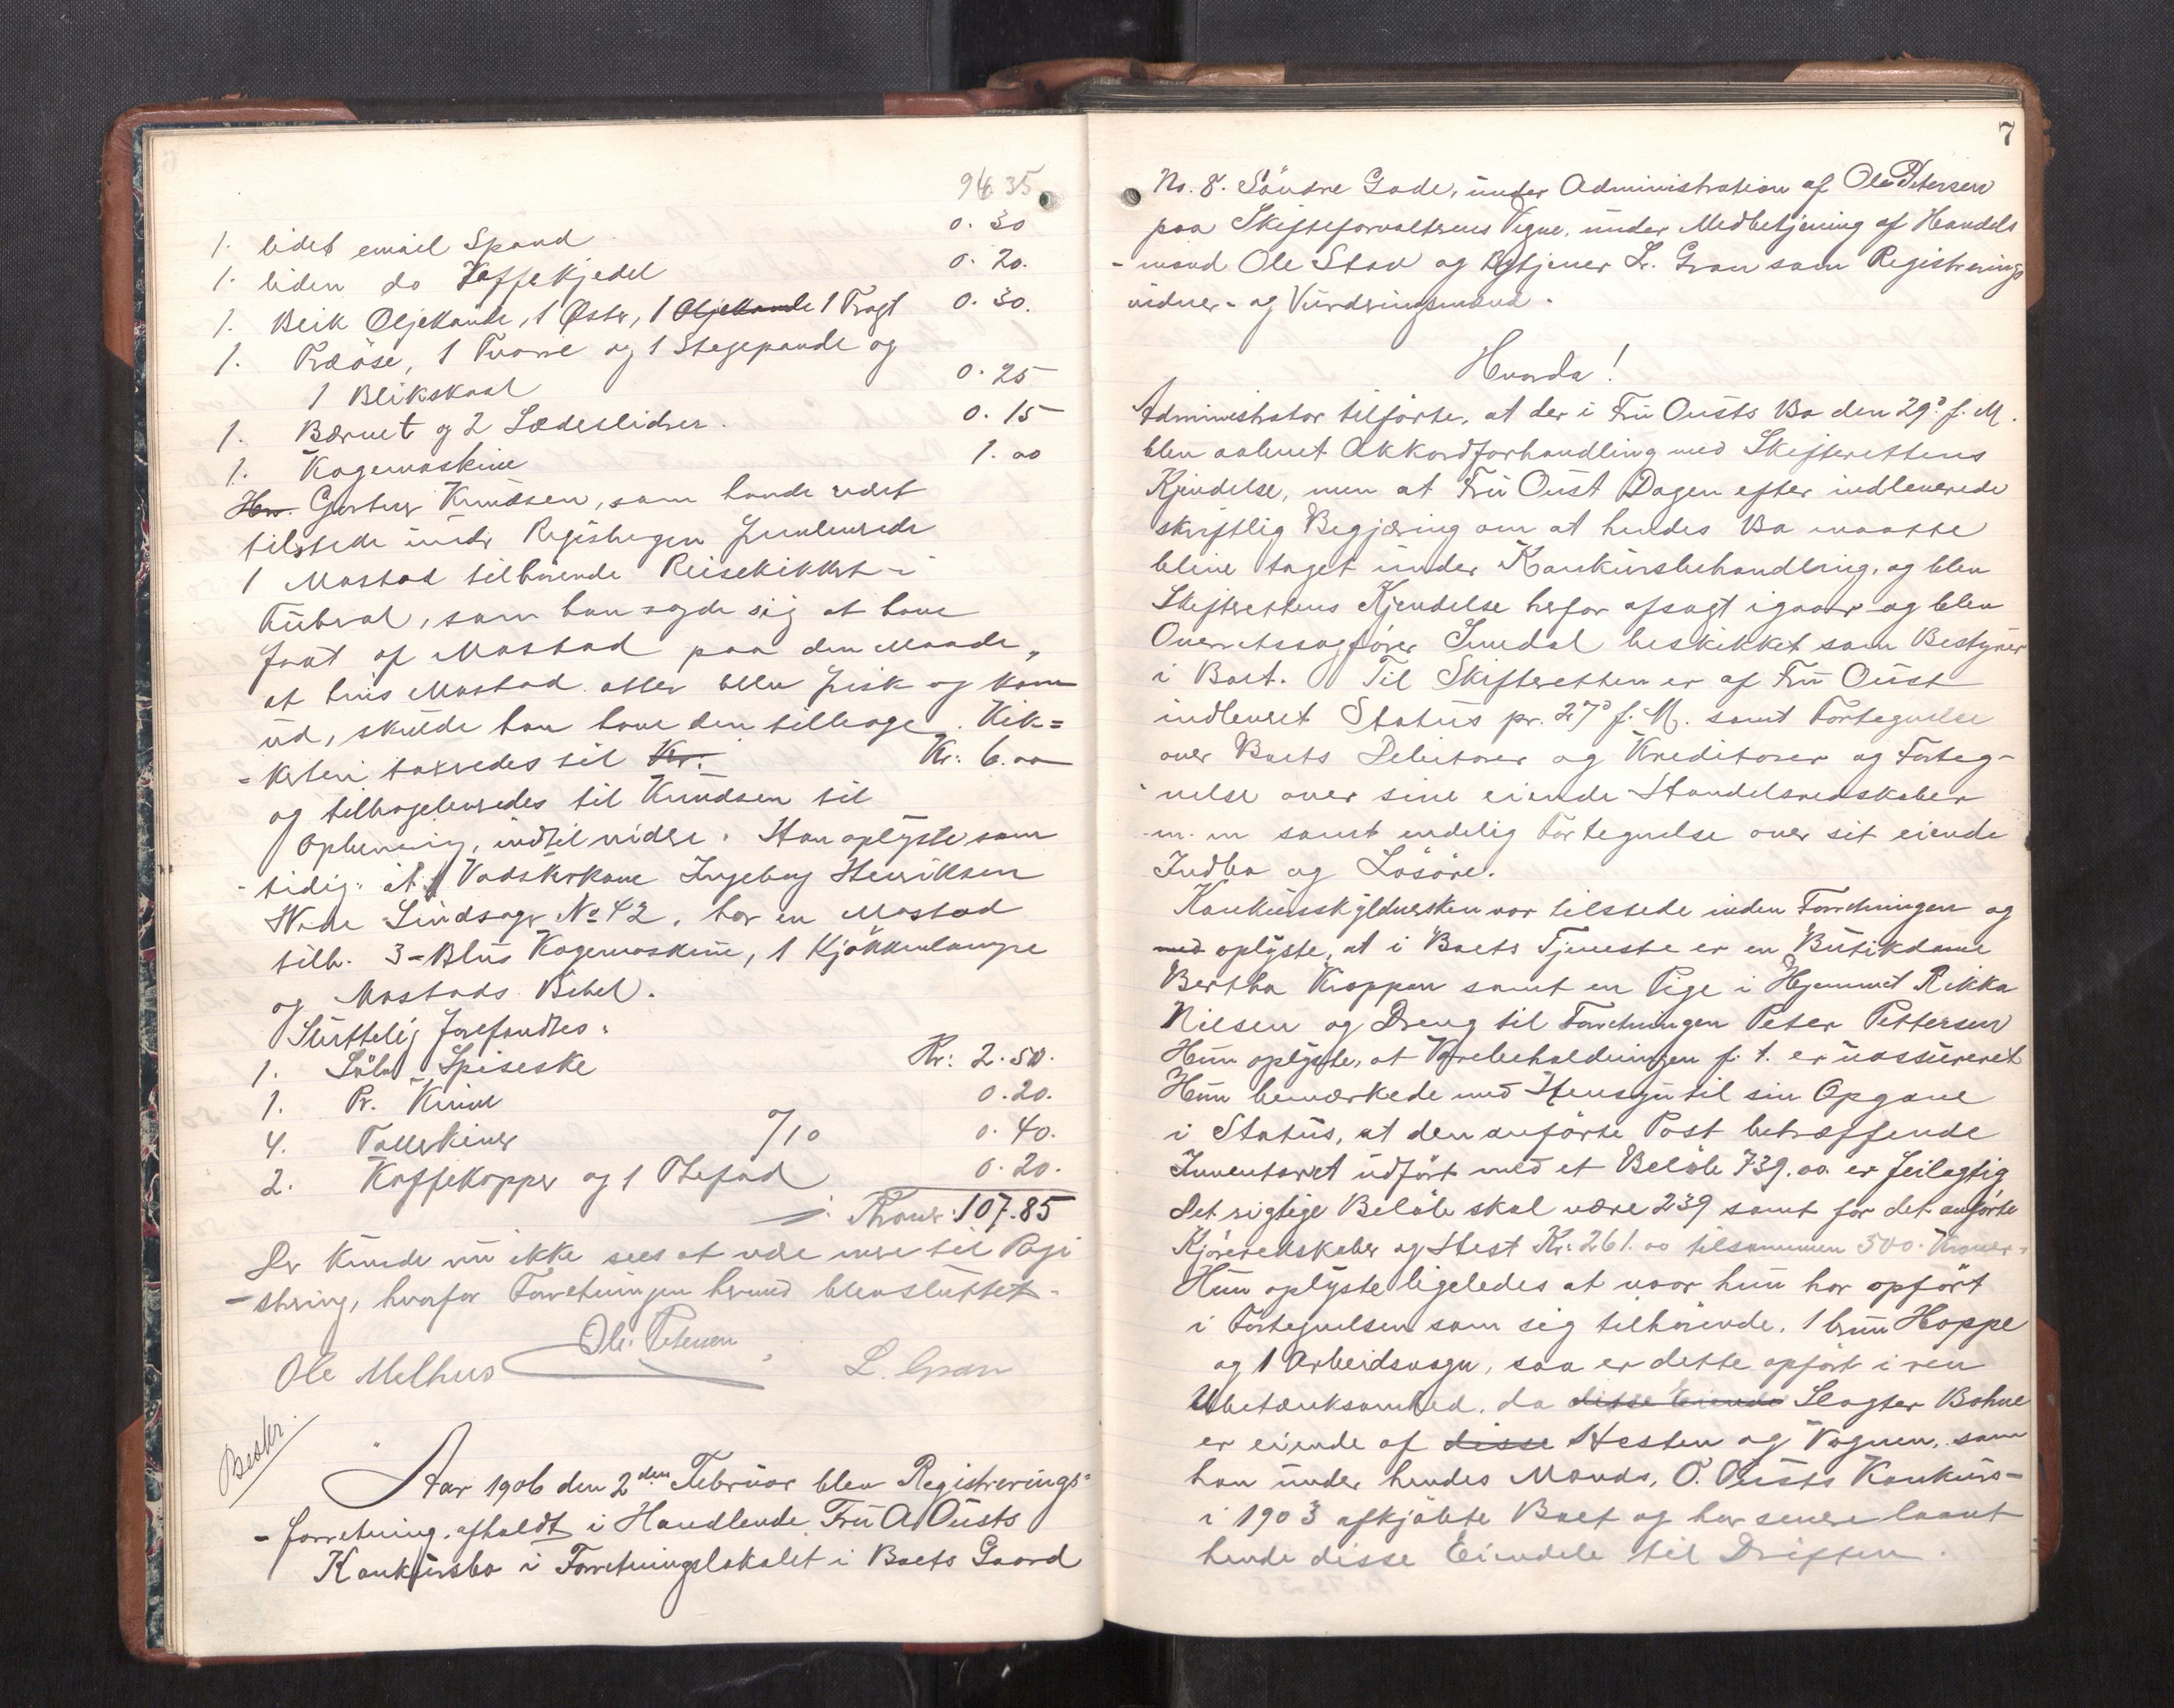 94.35
1. lidet email Spand 0.30
1. liden do Kaffekjedel 0.20.
1. Blik Oljekande, 1 Øster, 1 Oljekande 1 Tragt 0.30.
1. Træöse, 1 Tvare og 1 Stegepande og
1 Blikskaal 0.25
1. Bærnet og 2 Læderslidrer. 0.15
1. Kogemaskine 1.00
Hr. Gerhus Knudsen, som havde vedet
tilstede under Registregen fremleverede
1 Mostad tilhörende Reisekikkert i
Futeral, som han sagde sig at have
faat af Mostad paa den Maade,
at hvis Mostad atter blev frisk og kom
ud, skulde han have den tilbage. Kik=
-kerten taxeredes til Kr. Kr: 6.00
og tilbageleveredes til Knudsen til
Opbevaring, indtil videre. Han oplyste sam
-tidig: at Vadskekone Ingeborg Henriksen
Nedre Lindsogr No 42, har en Mostad
tilh. 3-Blus Kogemaskine, 1 Kjökkenlampe
og Mostads Bibel.
Sluttelig forefandtes:
1. Sölv Spiseske Kr: 2.50.
1. Pr. Knive 0.20.
4. Tallerkiner %10 0.40.
2. Kaffekopper og 1 Thefad 0.20.
Kroner: 107.85
Der kunde nu ikke sees at vær mere til Regi
-strering, hvorfor Forretningen hermed blev sluttet.
Ole Petersen
Ole Melhus L. Gran
Beskr.
Aar 1906 den 2den Februar blev Registrerings-
-forretning afholdt i Handlende Fru A Ousts
Konkursbo i Forretningslokalet i Boets Gaard
7
No. 8. Söndre Gade, under Administration af Ole Petersen
paa Skifteforvalterens Vegne, under Medbetjening af Handels
-mand Ole Stav og Bytjener L. Gran som Registrerings
vidner- og Vurderingsmænd.
Hvorda!
Administrator tilförte, at der i Fru Ousts Bo den 29de f. M.
blev aabnet Akkordforhandling med Skifterettens
Kjendelse, men at Fru Oust Dagen efter indleverede
skriftlig Begjæring om at hendes Bo maatte
blive taget under Konkursbehandling, og blev
Skifterettens Kjendelse herfor afsagt igaar og blev
Overretssagförer Smedal beskikket som Bestyrer
i Boet. Til Skifteretten er af Fru Oust
indleveret Status pr. 27de f. M. samt Fortegnelse
over Boets Debitorer og Kreditorer og Forteg-
nelse over sine eiende Handelsredskaber
m. m samt endelig Fortegnelse over sit eiende
Indbo og Lösöre.
Konkursskyldnersken var tilstede inden Forretningen og
med oplyste, at i Boets Tjeneste er en Butikdame
Bertha Kroppan samt en Pige i Hjemmet Rikka
Nilsen og Dreng til Forretningen Peter Pettersen
Hun oplyste, at Varebeholdningen p. t. er uassureret
Hun bemærkede med Hensyn til sin Opgave
i Status, at den anförte Post betræffende
Inventaret udfört med et Belöb 739.00 er feilagtig
Det rigtige Belöb skal være 239 samt for det anförte
Kjöreredskaber og Hest Kr: 261.00 tilsammen 500. Kroner.
Hun oplyste ligeledes at naar hun har opfört
i Fortegnelsen som sig tilhörende, 1 brun Hoppe
og 1 Arbeidsvogn, saa er dette opfört i ren
Ubetænksomhed, da disse Eiende Slagter Bohne
er eiende af disse Hesten og Vognen, som
han under hendes Mands, O. Ousts Konkurs-
i 1903 afkjöbte Boet og har senere laant
hende disse Eiendele til Driften.